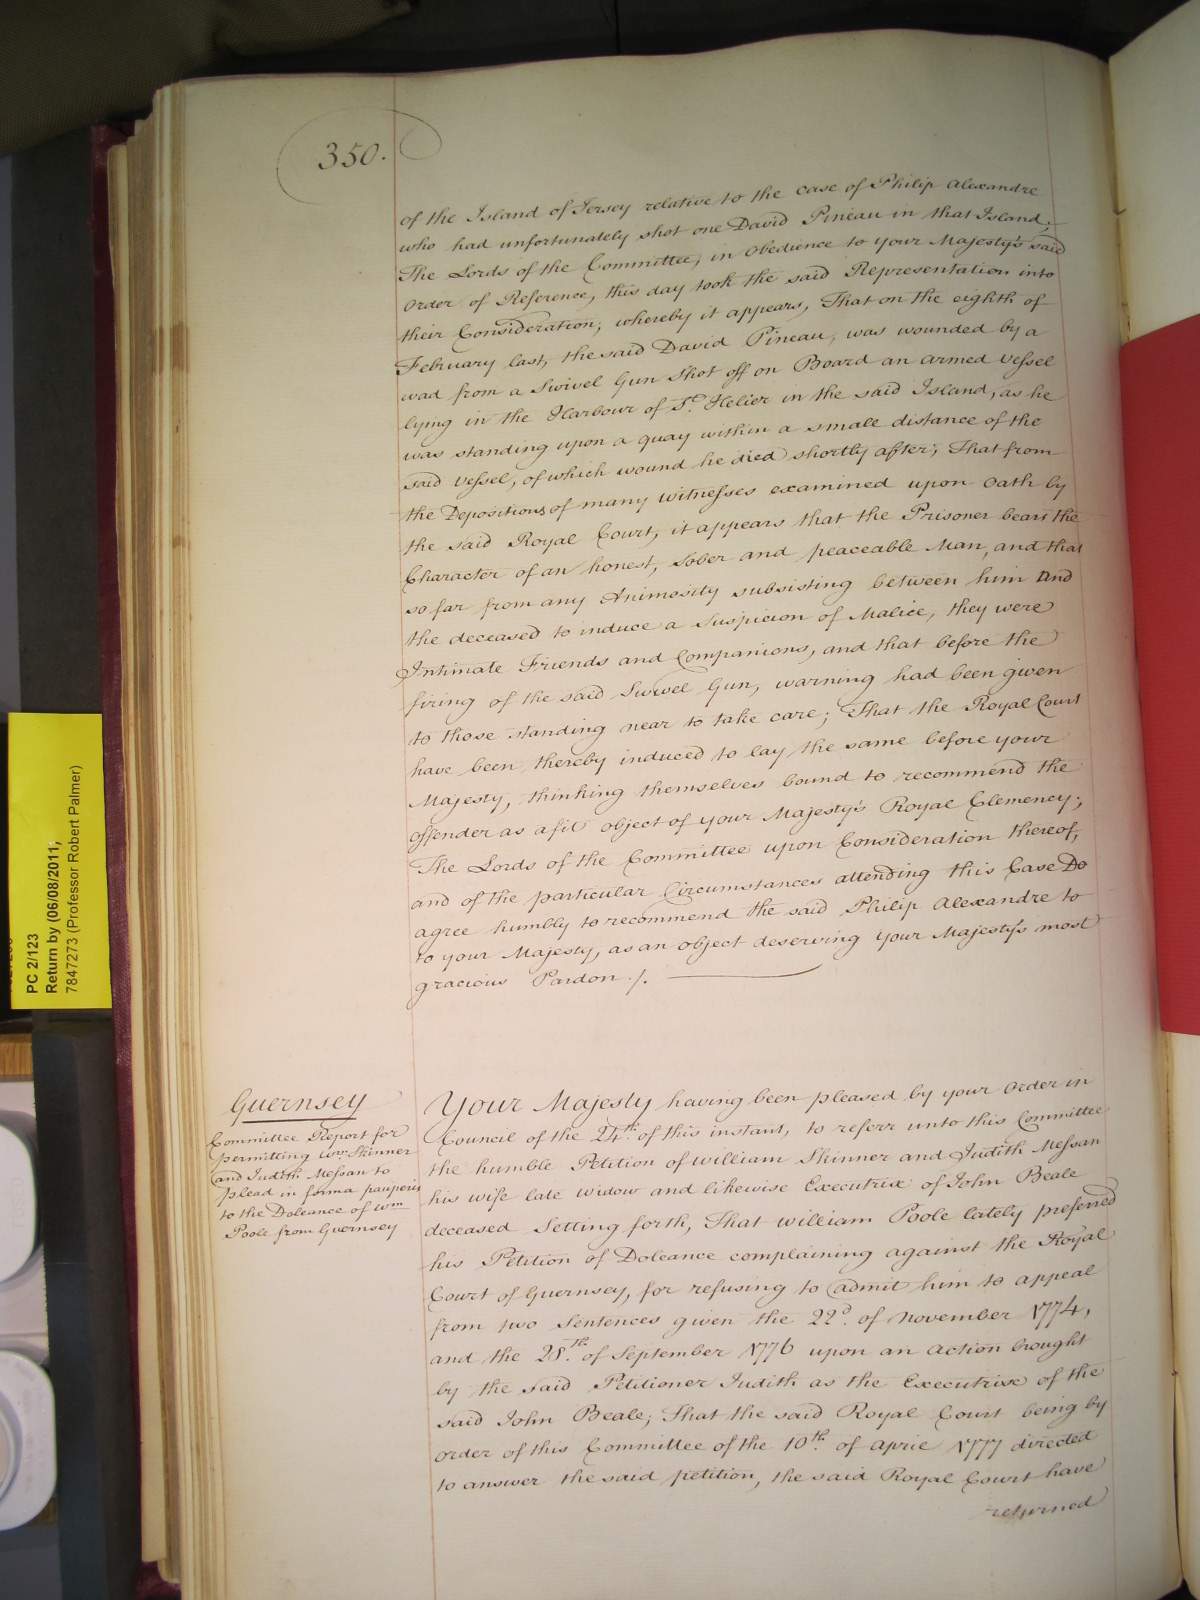 350.
of the Island of Jersey relative to the case of Philip Alexandre
who had unfortunately shot one David Pineau in that Island,
The Lords of the Committee, in Obedience to your Majesty's said
Order of Reference, this day took the said Representation into
their Consideration; whereby it appears, That on the eighth of
February last, the said David Pineau, was wounded by a
wad from a Swivel Gun Shot off on Board an armed Vessel
lying in the Harbour of St. Helier in the said Island, as he
was standing upon a quay within a small distance of the
said Vessel, of which wound he died shortly after; That from
the Depositions of many witnesses examined upon Oath by
the said Royal Court, it appears that the Prisoner bears the
Character of an honest, sober and peaceable Man, and that
so far from any Animosity subsisting between him and
the deceased to induce a Suspicion of Malice, they were
Intimate Friends and Companions, and that before the
firing of the said Swivel Gun, warning had been given
to those standing near to take care; That the Royal Court
have been thereby induced to lay the same before your
Majesty, thinking themselves bound to recommend the
offender as a fit object of your Majesty's Royal Clemency;
The Lords of the Committee upon Consideration thereof,
and of the particular Circumstances attending this Case Do
agree humbly to recommend the said Philip Alexandre to
to your Majesty, as an object deserving your Majesty's most
gracious Pardon ./.
Guernsey
Committee Report for
permitting Wm. Skinner
and Judith Messan to
plead in forma pauperis
to the Doleance of Wm
Poole from Guernsey
Your Majesty having been pleased by your Order in
Council of the 24th. of this instant, to referr unto this Committee
the humble Petition of William Skinner and Judith Messan
his wife late widow and likewise Executrix of John Beale
deceased Setting forth, That William Poole lately preferred
his Petition of Doleance complaining against the Royal
Court of Guernsey, for refusing to admit him to appeal
from two Sentences given the 22d. of November 1774,
and the 28th. of September 1776 upon an Action brought
by the said Petitioner Judith as the Executrix of the
said John Beale; That the said Royal Court being by
order of this Committee of the 10th. of April 1777 directed
to answer the said petition, the said Royal Court have
returned
PC 2/123
Return by (06/08/2011;
7847273 (Professor Robert Palmer)